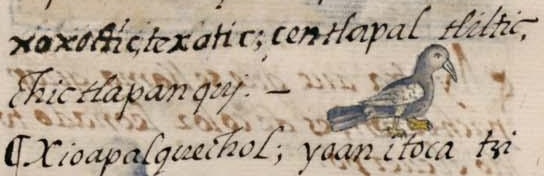 xoxoctic, texotic; centlapal tliltic,
chictlapanquj. —
¶ Xioapalquechol; yoan itoca tzi